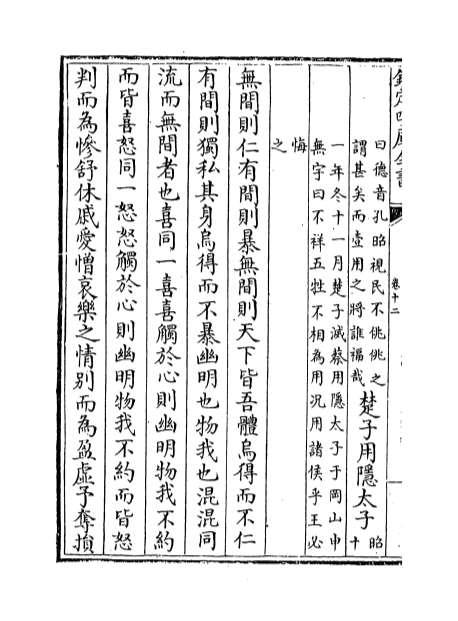 欽定四庫全書
卷十二
曰德音孔昭視民不佻佻之
謂甚矣而壹用之將誰福哉
楚子用隱太子
昭
十
一年冬十一月楚子滅蔡用隱太子于岡山申
無宇曰不祥五牲不相為用况用諸侯乎王必
悔
之
無間則仁有間則暴無間則天下皆吾體烏得而不仁
有間則獨私其身烏得而不暴幽明也物我也混混同
流而無間者也喜同一喜喜觸於心則幽明物我不約
而皆喜怒同一怒怒觸於心則幽明物我不約而皆怒
判而為慘舒休戚愛憎哀樂之情别而為盈虛予奪損